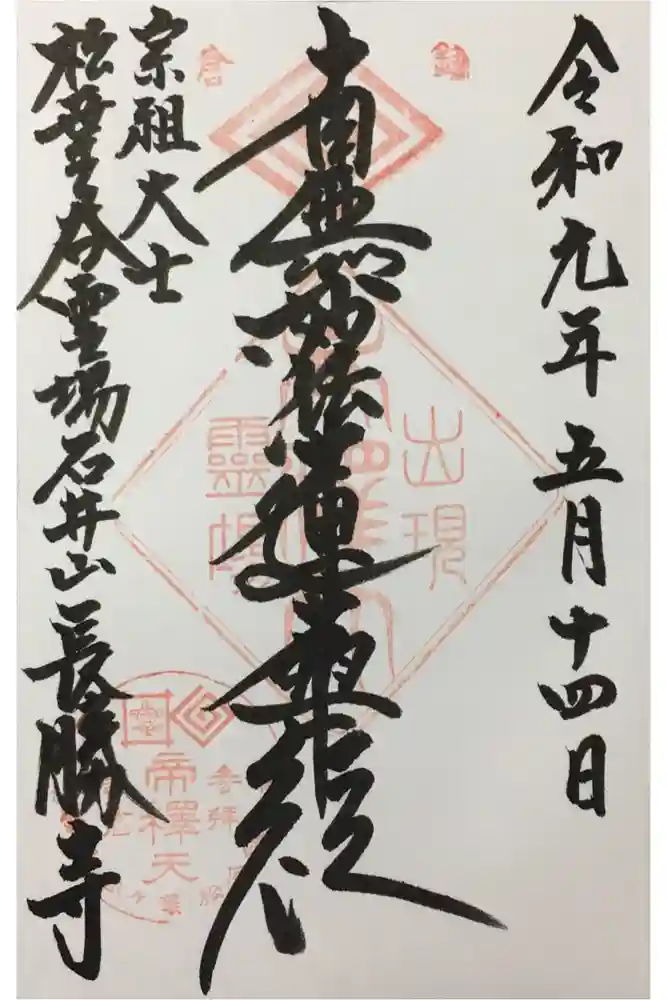 令和元年五月十四日
鎌倉
南無妙法蓮華経
出現
靈場
宗祖大士
松葉谷霊場石井山長勝寺
帝釋天
参拝